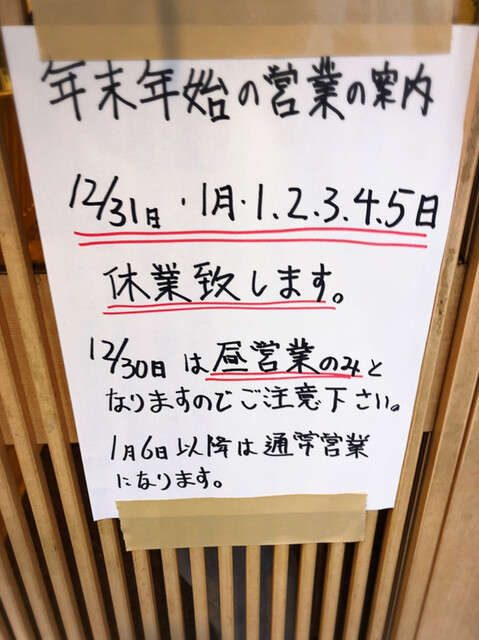 年末年始の営業の案内
12/31日・1月・1.2.3.4.5日
休業致します。
12/30日は昼営業のみと
なりますのでご注意下さい。
1月6日以降は通常営業
になります。